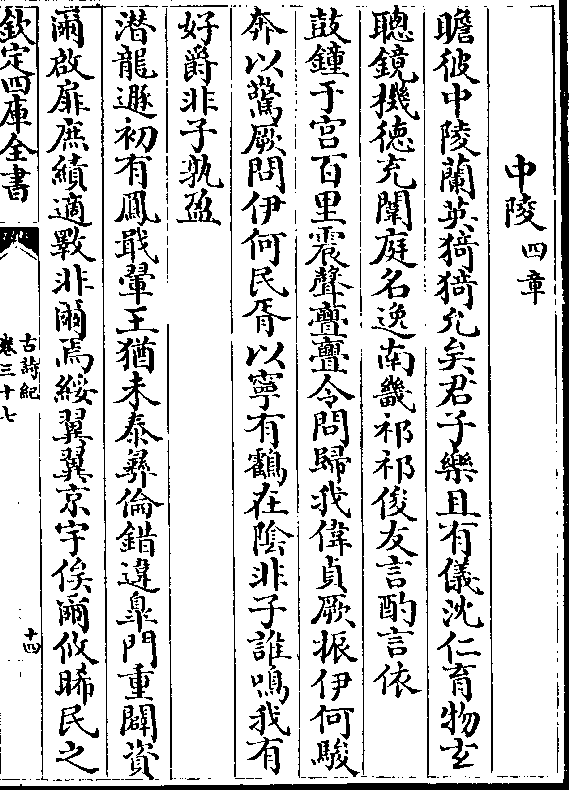 中陵四章
瞻彼中陵蘭英猗猗允矣君子樂且有儀沈仁育物玄
聰鏡機德充闈庭名逸南畿祁祁俊友言酌言依
鼓鐘于宮百里震聲亹亹令問歸我偉貞厥振伊何駿
奔以驚厥問伊何民胥以寧有鶴在陰非子誰鳴我有
好爵非子孰盈
潜龍遯初有鳳戢翬王猶未泰彝倫錯違臯門重闢資
爾啟扉庶績適斁非爾焉綏翼翼京宇俟爾攸晞民之
欽定四庫全書
古詩紀
卷三十七
十四